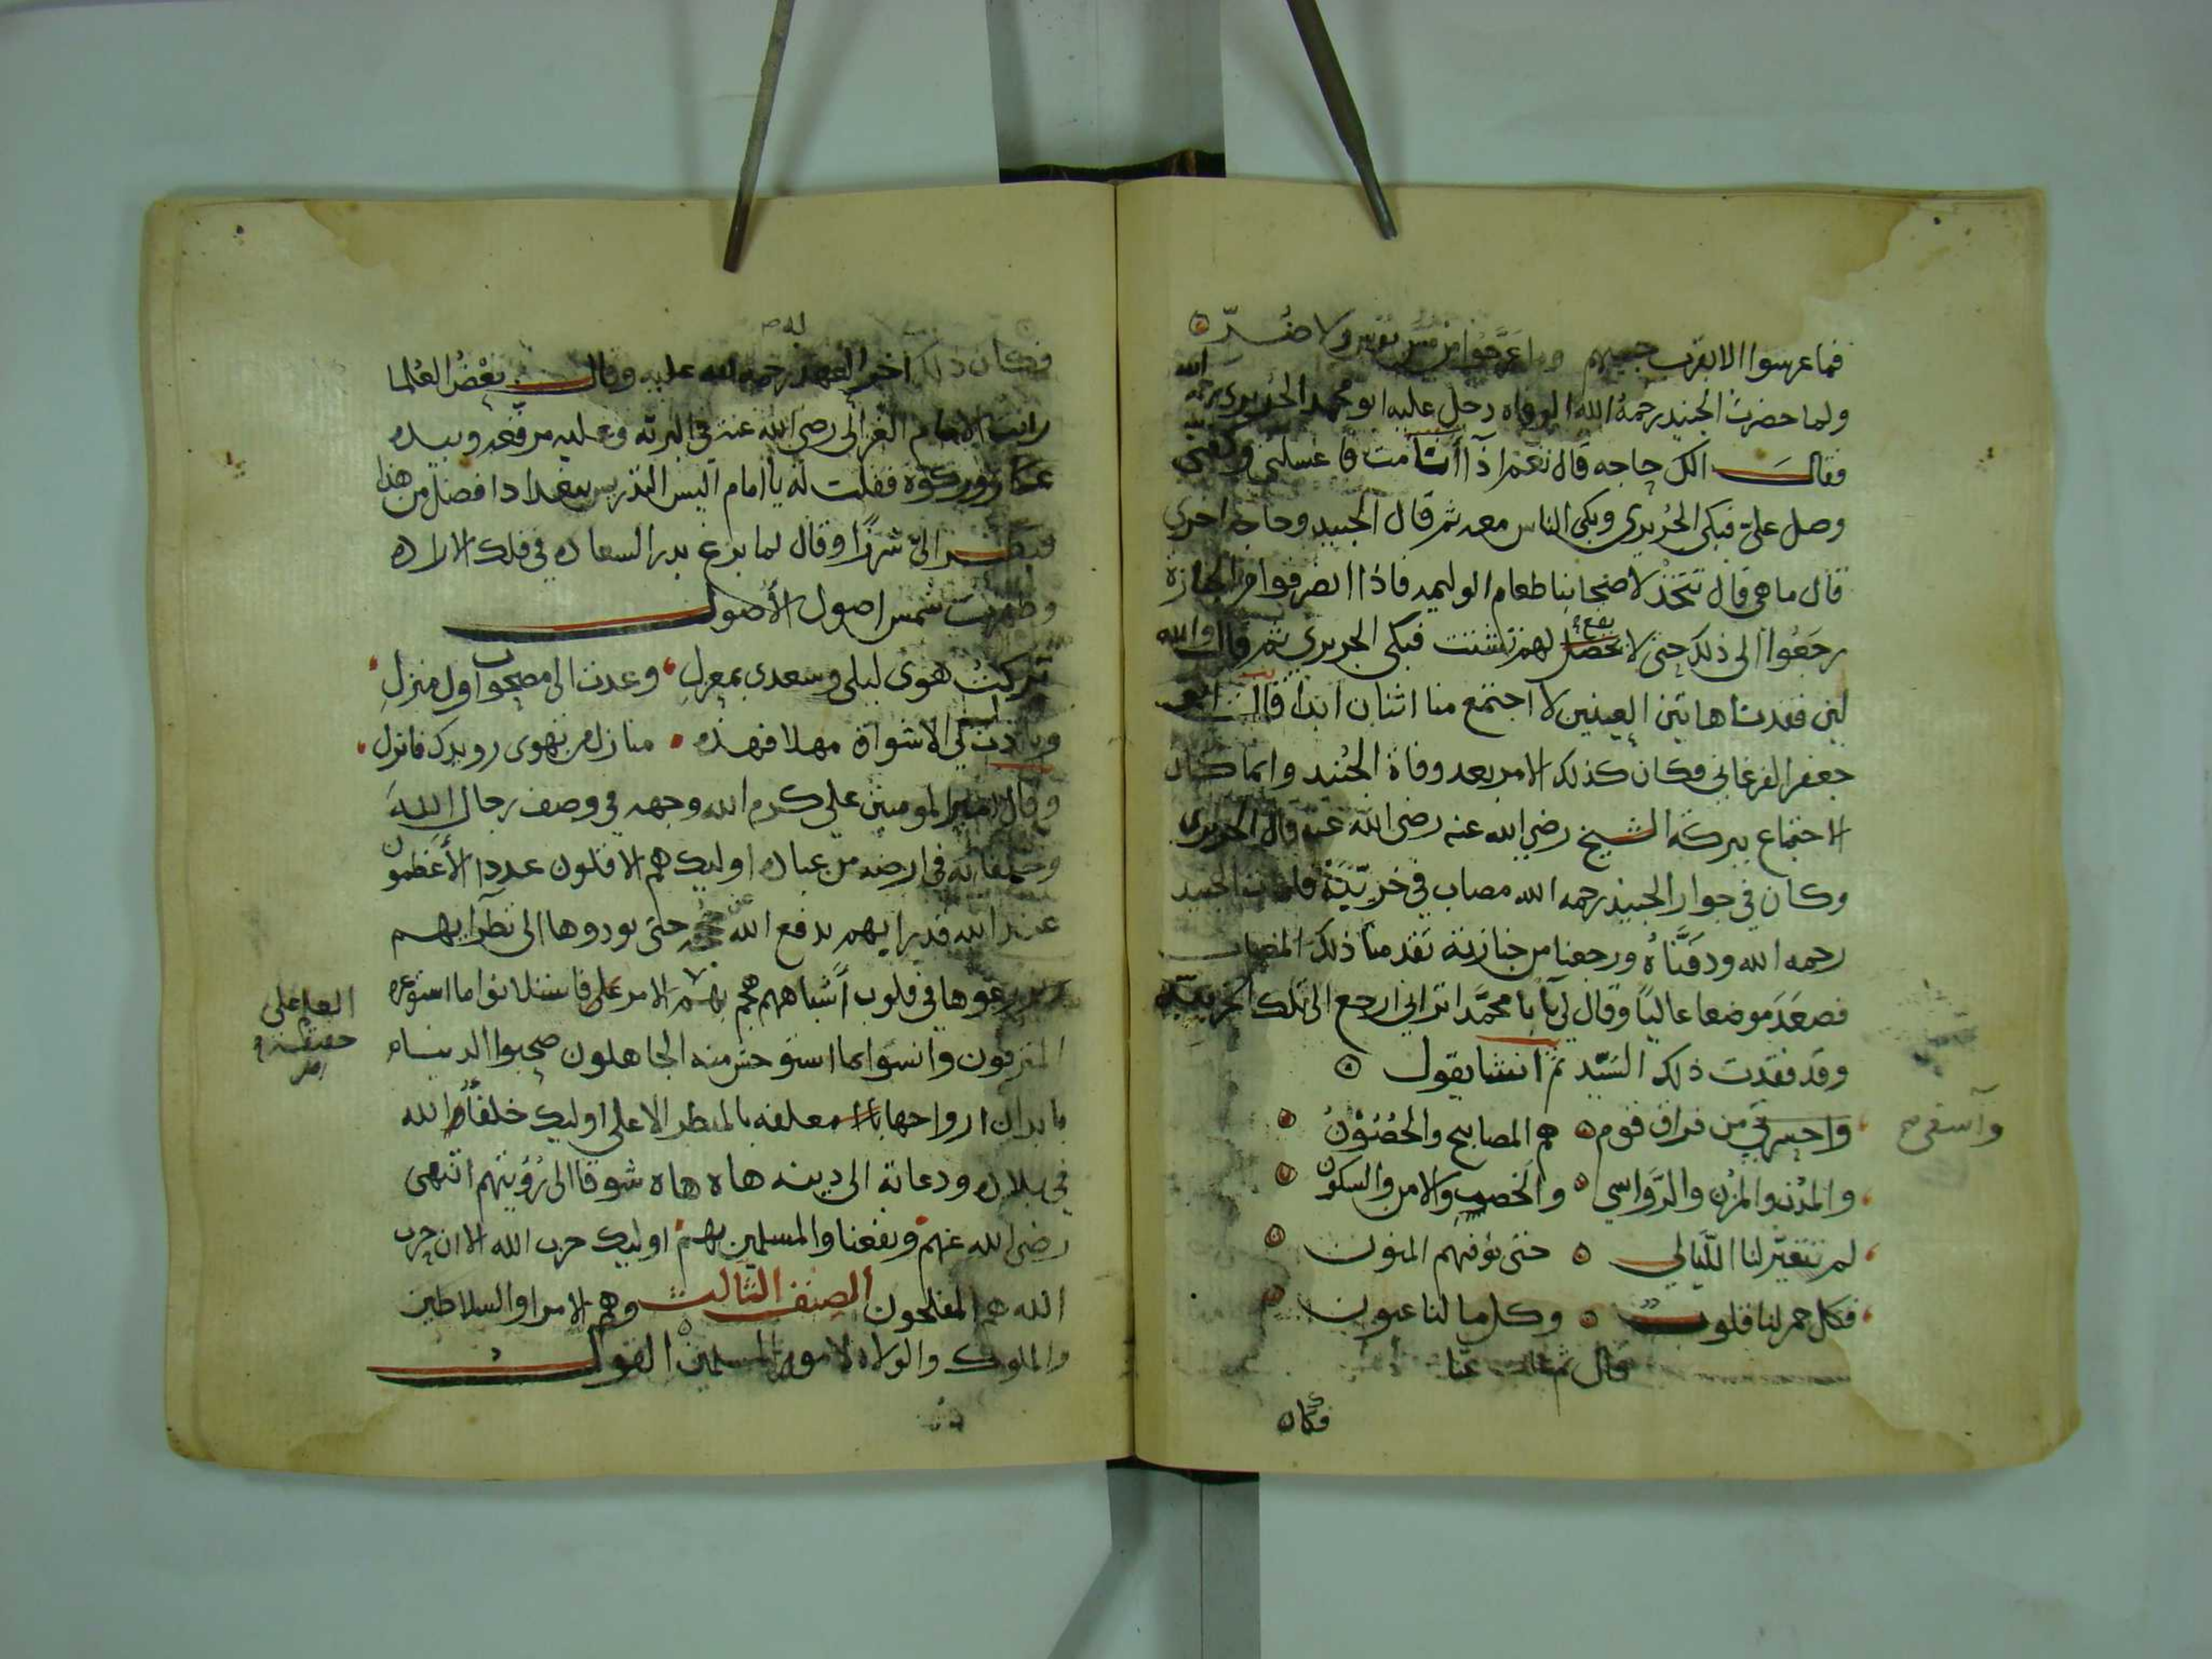 فما عرسوا الا بقرب حبيبهم وما عرجوا من مس بؤس ولا ضر
ولما حضرت الجنيد رحمه الله الوفاه دخل عليه ابو محمد الجريري رحمه الله
فقال الك حاجه قال نعم اذا أنا مت فاغسلني وكفني
وصل عليّ فبكى الجُريري وبكى الناس معه ثم قال الجنيد وحاجه اخرى
قال ما هي قال تتخذ لاصحابنا طعام الوليمه فاذا انصرفوا من الجنازة
رجعُوا الى ذلك حتى لا يقع لهم تشتت فبكى الجريري ثم قال والله
لين فقدنا هاتين العينين لا اجتمع منا اثنان ابدا قال ابو
جعفر الفرغاني فكان كذلك الامر بعد وفاة الجُنيد وانما كان
الاجتماع ببركة الشيخ رضي الله عنه رضى الله عنه قال الجريري
وكان في جوار الجنيد رحمه الله مصاب في خربَّة فلما مات الجنيد
رحمه الله ودفنّاهُ ورجعنا من جنازته تقدمنا ذلك المصاب
فصعَدَ موضعا عاليًا وقال لي يا با محمَّد اتراني ارجع الى تلك الخربه
وقد فقدت ذلك السَيّد ثم انشا يقول
واحسرتي من فراق قوم هم المصابيح والحُصُوْنُ
وآسفي صح
والمدْن والمزن والرَّواسي والخصب والامن والسكون
لم تتغيّر لنا اللّيالي حتى توفهم المنون
فكل جمر لنا قلوب وكل ما لنا عيون
قال ثم غاب عنّا
فكان
فكان ذلك اخر العهد به رحمه الله عليه وقال بعْضُ العُلما
رايت الامام الغزالي رضي الله عنه في البرية وعليه مرقعه وبيده
عكاز وركوة فقلت له يا امام اليس التدريس ببغداد افضل من هذا
فنظر اليّ شزرًا وقال لما بزغ بدر السعاده في فلك الاراده
وظهرت شمس اصول الأصول
تركتُ هوى ليلى وسعدى بمعزل وعدت الى مصحوب اول منزل
ونادت بي الاشواق مهلا فهذه منازل من تهوى رويدك فانزل
وقال امير المومنين علي كرم الله وجهه في وصف رجال الله
وخلفائه في ارضه من عباده اوليك هم الاقلون عددا الأعظمون
عند الله قدرا بهم يدفع الله عن حججه حتى يودوها الى نظرايهم
ويزرعوها في قلوب أشباههم هجم بهم الامر على فاستلانوا ما استوعره
العلم على
حقيقة
الامر
المترفون وانسوا بما استوحش منه الجاهلون صحبوا الدنيا
بابدان ارواحها معلقه بالمنظر الاعلى اوليك خلفاء الله
في بلاده ودعاته الى دينه هاه هاه شوقا الى رُؤيتهم انتهى
رضي الله عنهم ونفعنا والمسلمين بهم اوليك حزب الله الا ان حزب
الله هم المفلحون الصنف الثالث وهم الامرا والسلاطين
والملوك والولاه لامور المسلمين القول